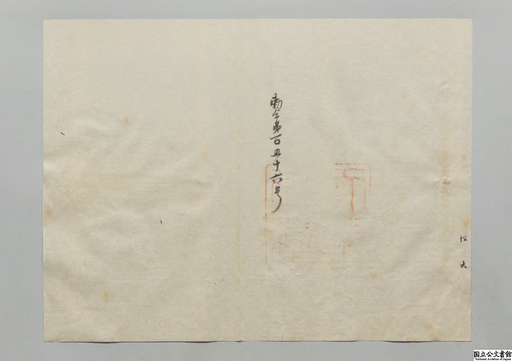 勅令第百五十六号
国立公文書館
National Archives of Japan